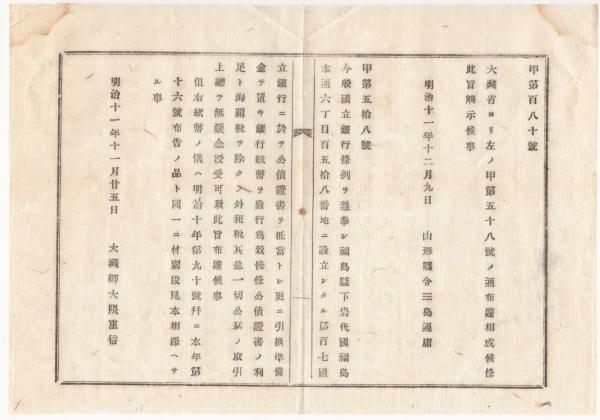 甲第百八十號
大藏省ヨリ左ノ甲第五十八號ノ通布達相成候條
此旨觸示候事
明治十一年十二月九日　山形縣令三島通庸
甲第五拾八號
今般國立銀行條例ヲ遵奉シ福島縣下岩代國福島
本通六丁目百五拾八番地ニ設立シタル第百七國
立銀行ニ於テ公債證書ヲ抵當トシ更ニ引換準備
金ヲ置キ銀行紙幣ヲ發行爲致候條公債證書ノ利
足ト海關税ヲ除クノ外租税其他一切公私ノ取引
上總テ無疑念授受可致此旨布達候事
但右紙幣ノ儀ハ明治十年第九十號幷ニ本年第
十六號布告ノ品ト同一ニ付別段見本相添ヘサ
ル事
明治十一年十一月廿五日　大藏卿大隈重信